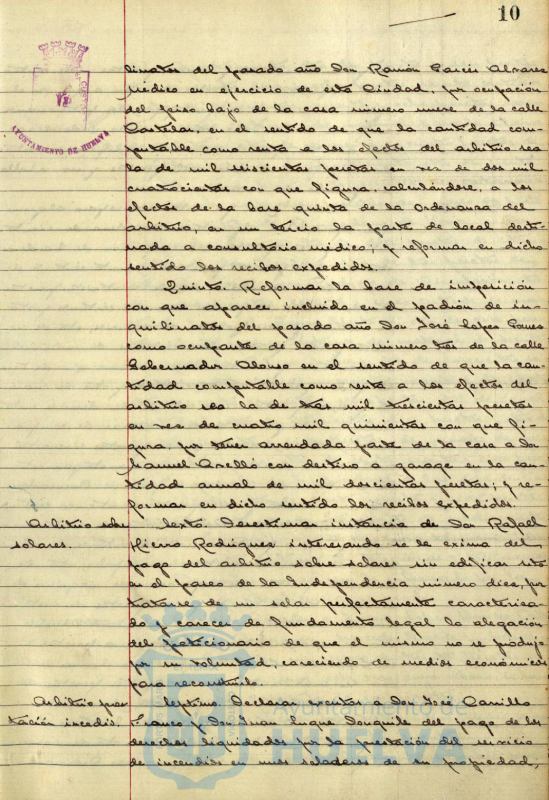 10
linatos del pasado año Don Ramón García Alvarez
médico en ejercicio de esta Ciudad, por ocupación
del piso bajo de la casa número nueve de la calle
Castelar, en el sentido de que la cantidad com-
putable como renta a los efectos del arbitrio sea
la de mil seiscientas pesetas en vez de dos mil
cuatrocientas con que figura, calculándose, a los
efectos de la base quinta de la Ordenanza del
arbitrio, en un tercio la parte de local desti-
nada a consultorio médico; y reformar en dicho
sentido los recibos expedidos.
Quinto. Reformar la base de imposición
con que aparece incluido en el padrón de in-
quilinatos del pasado año Don José Lopez Gomez
como ocupante de la casa número tres de la calle
Gobernador Alonso en el sentido de que la can-
tidad computable como renta a los efectos del
arbitrio sea la de tres mil trescientas pesetas
en vez de cuatro mil quinientas con que fi-
gura, por tener arrendada parte de la casa a Don
Manuel con destino a garage en la can-
tidad anual de mil doscientas pesetas; y re-
formar en dicho sentido los recibos expedidos.
Arbitrio sobre
solares.
Sexto. Desestimar instancia de Don Rafael
Hierro Rodríguez interesando se le exima del
pago del arbitrio sobre solares sin edificar sito
en el paseo de la Independencia número diez, por
tratarse de un solar perfectamente caracteriza-
do y carecer de fundamento legal la alegación
del peticionario de que el mismo no se produjo
por su voluntad, careciendo de medios económicos
para reconstruirlo.
Arbitrio pres
tación incedio.
Septimo. Declarar exentos a Don José Carrillo
Franco y Don Juan Luque del pago de los
derechos liquidados por la prestación del servicio
de incendios en unos soladeros de su propiedad,
AYUNTAMIENTO DE HUELVA
Ayuntamiento de
HUELVA